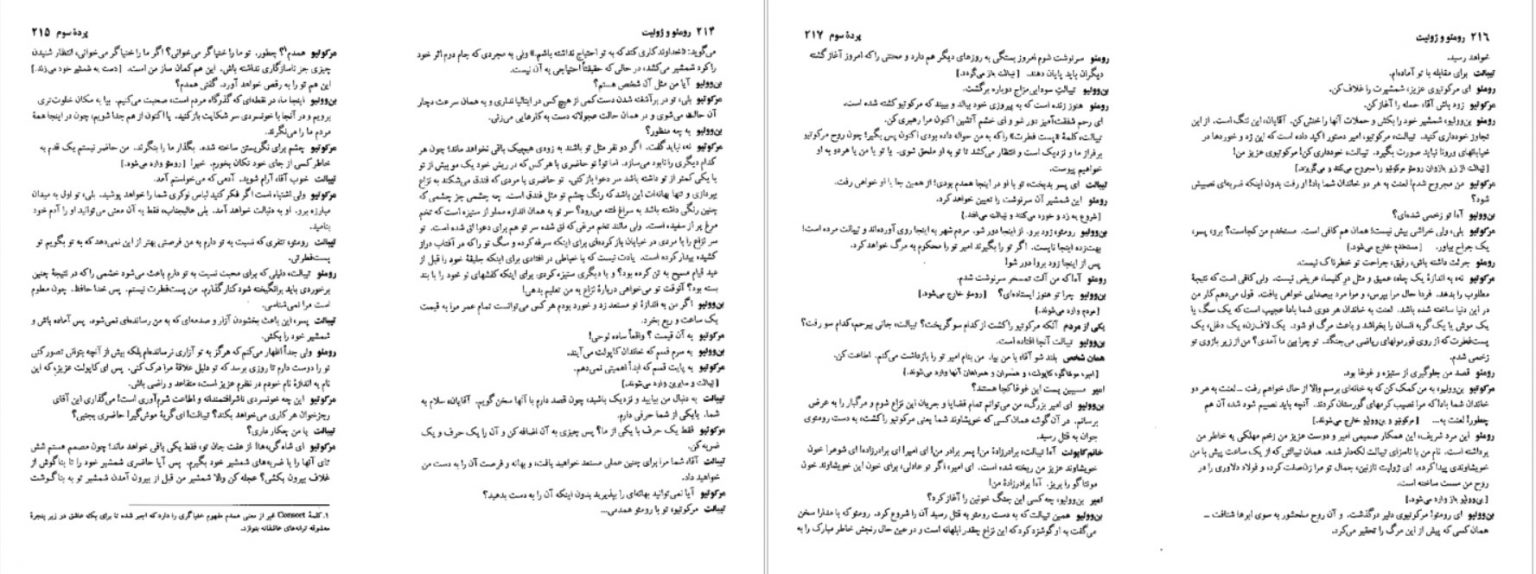 ۲۱۴ رومئو و ژولیت
می‌گوید: «خداوند کاری کند که به تو احتیاج نداشته باشم.» ولی به مجردی که جام دوم اثر خود
را کرد شمشیر می‌کشد، در حالی که حقیقتاً احتیاجی به آن نیست.
بن‌وولیو آیا من مثل آن شخص هستم؟
مرکوتیو بلی، تو در برآشفته شدن دست کمی از هیچ‌کس در ایتالیا نداری و به همان سرعت دچار
آن حالت می‌شوی و در همان حالت عجولانه دست به کارهایی می‌زنی.
بن‌وولیو به چه منظور؟
مرکوتیو نه، نباید گفت. اگر دو نفر مثل تو باشند به زودی هیچیک باقی نخواهد ماند؛ چون هر
کدام دیگری را نابود می‌سازد. اما تو! تو حاضری با هر کس که در ریش خود یک مو بیش از تو
یا یکی کمتر از تو داشته باشد سر دعوا باز کنی. تو حاضری با مردی که فندق می‌شکند به نزاع
بپردازی و تنها بهانه‌ات این باشد که رنگ چشم تو مثل فندق است. چه چشمی جز چشمی که
چنین رنگی داشته باشد به سراغ فتنه می‌رود؟ سر تو به همان اندازه مملو از ستیزه است که تخم
مرغ پر از سفیده است. ولی مانند تخم مرغی که لق شده سر تو هم برای دعوا لق شده است. تو
سر نزاع را با مردی در خیابان باز کرده‌ای برای اینکه سرفه کرده و سگ تو را که در آفتاب دراز
کشیده بیدار کرده است. یادت نیست که با خیاطی در افتادی برای اینکه جلیقهٔ خود را قبل از
عید قیام مسیح به تن کرده بود؟ و با دیگری ستیزه کردی برای اینکه کفشهای نو خود را با بند
بسته بود؟ آنوقت تو می‌خواهی دربارهٔ نزاع به من تعلیم بدهی!
بن‌وولیو اگر من به اندازهٔ تو مستعد زد و خورد بودم هر کس می‌توانست تمام عمر مرا به قیمت
یک ساعت و ربع بخرد.
مرکوتیو به آن قیمت؟ واقعاً ساده لوحی!
بن‌وولیو به سرم قسم که خاندان کاپولت می‌آیند.
مرکوتیو به پایت قسم که ابداً اهمیتی نمی‌دهم.
[تیبالت و سایرین وارد می‌شوند.]
تیبالت به دنبال من بیایید و نزدیک باشید، چون قصد دارم با آنها سخن گویم. آقایان، سلام به
شما. با یکی از شما حرفی دارم.
مرکوتیو فقط یک حرف با یکی از ما؟ پس چیزی به آن اضافه کن و آن را یک حرف و یک
ضربه کن.
تیبالت آقا، شما مرا برای چنین عملی مستعد خواهید یافت، و بهانه و فرصت آن را به دست من
خواهید داد.
مرکوتیو آیا نمی‌توانید بهانه‌ای را بپذیرید بدون اینکه آن را به دست بدهید؟
تیبالت مرکوتیو، تو با رومئو همدمی...
پردهٔ سوم ۲۱۵
مرکوتیو همدم¹؟ چطور. تو ما را خنیاگر می‌خوانی؟ اگر ما را خنیاگر می‌خوانی، انتظار شنیدن
چیزی جز ناسازگاری نداشته باش. این هم کمان ساز من است. [دست به شمشیر خود می‌زند.]
این هم تو را به رقص خواهد آورد. گفتی همدم؟
بن‌وولیو اینجا ما، در نقطه‌ای که گذرگاه مردم است، صحبت می‌کنیم. بیا به مکان خلوت‌تری
برویم و در آنجا با خونسردی سر شکایت باز کنید. یا اکنون از هم جدا شویم، چون در اینجا همهٔ
مردم ما را می‌نگرند.
مرکوتیو چشم برای نگریستن ساخته شده. بگذار ما را بنگرند. من حاضر نیستم یک قدم به
خاطر کسی از جای خود تکان بخورم. خیر! [رومئو وارد می‌شود.]
تیبالت خوب آقا، آرام شوید. آدمی که می‌خواستم آمد.
مرکوتیو ولی اشتباه است اگر فکر کنید لباس نوکری شما را خواهد پوشید. بلی، تو اول به میدان
مبارزه برو. او به دنبالت خواهد آمد. بلی عالیجناب، فقط به آن معنی می‌توانید او را آدم خود
بنامید.
تیبالت رومئو، تنفری که نسبت به تو دارم به من فرصتی بهتر از این نمی‌دهد که به تو بگویم تو
پست‌فطرتی.
رومئو تیبالت، دلیلی که برای محبت نسبت به تو دارم باعث می‌شود خشمی را که در نتیجهٔ چنین
برخوردی باید برانگیخته شود کنار گذارم. من پست‌فطرت نیستم. پس خدا حافظ. چون معلوم
است مرا نمی‌شناسی.
تیبالت پسر، این باعث بخشودن آزار و صدمه‌ای که به من رسانده‌ای نمی‌شود. پس آماده باش و
شمشیر خود را بکش.
رومئو ولی جداً اظهار می‌کنم که هرگز به تو آزاری نرسانده‌ام بلکه بیش از آنچه بتوانی تصور کنی
تو را دوست دارم تا روزی برسد که تو دلیل علاقهٔ مرا درک کنی. پس ای کاپولت عزیز، که این
نام به اندازهٔ نام خودم در نظرم عزیز است، متقاعد و راضی باش.
مرکوتیو این چه خونسردی ناشرافتمندانه و اطاعت شرم‌آوری است! می‌گذاری این آقای
رجزخوان هر کاری می‌خواهد بکند؟ تیبالت! ای گربهٔ موش‌گیر! حاضری بجنبی؟
تیبالت با من چه کار داری؟
مرکوتیو ای شاه گربه‌ها! از هفت جان تو، فقط یکی باقی خواهد ماند؛ چون مصمم هستم شش
تای آنها را با ضربه‌های شمشیر خود بگیرم. پس آیا حاضری شمشیر خود را تا بناگوش از
غلاف بیرون بکشی؟ عجله کن والا شمشیر من قبل از بیرون آمدن شمشیر تو به بناگوشت
۱. کلمهٔ Consort غیر از معنی همدم مفهوم خنیاگری را دارد که اجیر شده تا برای یک عاشق در زیر پنجرهٔ
معشوقه ترانه‌های عاشقانه بنوازد.
۲۱۶ رومئو و ژولیت
خواهد رسید.
تیبالت برای مقابله با تو آماده‌ام.
رومئو ای مرکوتیوی عزیز، شمشیرت را غلاف کن.
مرکوتیو زود باش آقا، حمله را آغاز کن.
رومئو بن‌وولیو، شمشیر خود را بکش و حملات آنها را خنثی کن. آقایان، این ننگ است. از این
تجاوز خودداری کنید. تیبالت، مرکوتیو، امیر دستور اکید داده است که این زد و خوردها در
خیابانهای ورونا نباید صورت بگیرد. تیبالت، خودداری کن! مرکوتیوی عزیز من!
[تیبالت از زیر بازوان رومئو مرکوتیو را مجروح می‌کند و می‌گریزد.]
مرکوتیو من مجروح شدم! لعنت به هر دو خاندان شما باد! او رفت بدون اینکه ضربه‌ای نصیبش
شود؟
بن‌وولیو آه! تو زخمی شده‌ای؟
مرکوتیو بلی، ولی خراشی بیش نیست؛ همان هم کافی است. مستخدم من کجاست؟ برو، پسر،
یک جراح بیاور. [مستخدم خارج می‌شود.]
رومئو جرئت داشته باش، رفیق، جراحت تو خطرناک نیست.
مرکوتیو نه، به اندازهٔ یک چاه، عمیق و مثل در کلیسا، عریض نیست. ولی کافی است که نتیجهٔ
مطلوب را بدهد. فردا حال مرا بپرس، و مرا مرد بیصدایی خواهی یافت. قول می‌دهم کار من
در این دنیا ساخته شده باشد. لعنت به خاندان هر دوی شما باد! عجیب است که یک سگ یا
یک موش یا یک گربه انسان را بخراشد و باعث مرگ او شود. یک لاف‌زن، یک دغل، یک
پست‌فطرت که از روی فورمولهای ریاضی می‌جنگد. تو چرا بین ما آمدی؟ من از زیر بازوی تو
زخمی شدم.
رومئو قصد من جلوگیری از ستیزه و غوغا بود.
مرکوتیو بن‌وولیو، به من کمک کن که به خانه‌ای برسم والا از حال خواهم رفت... لعنت به هر دو
خاندان شما باد! که مرا نصیب کرمهای گورستان کردند. آنچه باید نصیبم شود شده آن هم
چطور! لعنت به... [مرکوتیو و بن‌وولیو خارج می‌شوند.]
رومئو این مرد شریف، این همکار صمیمی امیر و دوست عزیز من زخم مهلکی به خاطر من
برداشته است. نام من با ناسزای تیبالت لکه‌دار شده. همان تیبالتی که از یک ساعت پیش با من
خویشاوندی پیدا کرده. ای ژولیت نازنین، جمال تو مرا زن‌صفت کرده و فولاد دلاوری را در
روح من سست ساخته است.
[بن‌وولیو باز وارد می‌شود.]
بن‌وولیو ای رومئو! مرکوتیوی دلیر درگذشت. و آن روح سلحشور به سوی ابرها شتافت...
همان کسی که پیش از این مرگ را تحقیر می‌کرد.
پردهٔ سوم ۲۱۷
رومئو سرنوشت شوم امروز بستگی به روزهای دیگر هم دارد و محنتی را که امروز آغاز گشته
دیگران باید پایان دهند. [تیبالت باز می‌گردد.]
بن‌وولیو تیبالتِ سودایی مزاج دوباره برگشت.
رومئو هنوز زنده است که به پیروزی خود ببالد و ببیند که مرکوتیو کشته شده است.
ای رحم شفقت‌آمیز دور شو و ای خشم آتشین اکنون مرا رهبری کن.
تیبالت، کلمهٔ «پست فطرت» را که به من حواله داده بودی اکنون پس بگیر! چون روح مرکوتیو
بر فراز ما و نزدیک است و انتظار می‌کشد تا تو به او ملحق شوی. یا تو با من یا هر دو به او
خواهیم پیوست.
تیبالت ای پسر بدبخت، تو با او در اینجا همدم بودی! از همین جا با او خواهی رفت.
رومئو این شمشیر آن سرنوشت را تعیین خواهد کرد.
[شروع به زد و خورد می‌کنند و تیبالت می‌افتد.]
بن‌وولیو رومئو، زود برو. از اینجا دور شو. مردم شهر به اینجا روی آورده‌اند و تیبالت مرده است!
بهت‌زده اینجا نایست. اگر تو را بگیرند امیر تو را محکوم به مرگ خواهد کرد.
پس از اینجا زود برو! دور شو!
رومئو آه! که من آلت تمسخر سرنوشت شدم.
بن‌وولیو چرا تو هنوز ایستاده‌ای؟ [رومئو خارج می‌شود.]
[مردم وارد می‌شوند.]
یکی از مردم آنکه مرکوتیو را کشت از کدام سو گریخت؟ تیبالت، جانی بیرحم، کدام سو رفت؟
بن‌وولیو تیبالت آنجا افتاده است.
همان شخص بلند شو آقا، با من بیا. من بنام امیر تو را بازداشت می‌کنم. اطاعت کن.
[امیر، مونتاگو، کاپولت، و همسران و همراهان آنها وارد می‌شوند.]
امیر مسببین پست این غوغا کجا هستند؟
بن‌وولیو ای امیر بزرگ، من می‌توانم تمام قضایا و جریان این نزاع شوم و مرگبار را به عرض
برسانم. در آن گوشه همان کسی که خویشاوند شما یعنی مرکوتیو را کشت، به دست رومئوی
جوان به قتل رسید.
خانم کاپولت آه! تیبالت، برادرزادهٔ من! پسر برادر من! ای امیر! ای برادرزاده! ای شوهر! خون
خویشاوند عزیز من ریخته شده است. ای امیر، اگر تو عادلی، برای خون این خویشاوند خون
مونتاگو را بریز. آه! برادرزادهٔ من!
امیر بن‌وولیو، چه کسی این جنگ خونین را آغاز کرد؟
بن‌وولیو همین تیبالت که به دست رومئو به قتل رسید آن را شروع کرد. رومئو که با مدارا سخن
می‌گفت به او گوشزد کرد که این نزاع چقدر ابلهانه است و در عین حال رنجش خاطر مبارک را به